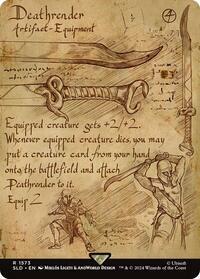 Deathrender
4
Artifact-Equipment
Equipped creature gets +2/+2.
Whenever equipped creature dies, you may
put a creature card from your hand
onto the battlefield and attach
Deathrender to it.
Equip 2
R 1573
SLD • EN MIKLÓS LIGETI & ANOWORLD DESIGN
© Ubisoft
™ & © 2024 Wizards of the Coast